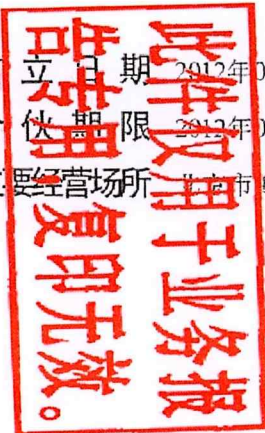 立日期 2012年0
伙期限 2012年0
要经营场所 北京市
此件仅用于业务报
告专用,复印无效。